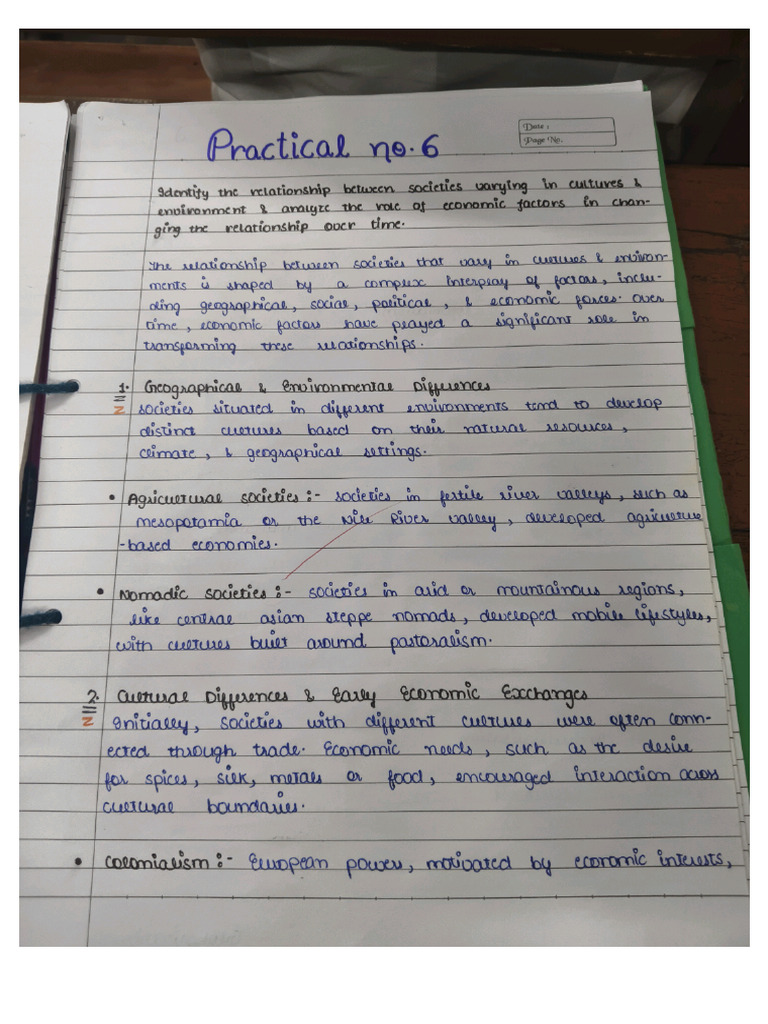 Date :
Page No.
Practical no. 6
Identify the relationship between societies varying in cultures &
environment & analyze the role of economic factors in chan-
ging the relationship over time.
The relationship between societies that vary in cultures & environ-
ments is shaped by a complex interplay of factors, inclu-
ding geographical, social, political, & economic forces. Over
time, economic factors have played a significant role in
transforming these relationships.
1. Geographical & Environmental Differences
societies situated in different environments tend to develop
distinct cultures based on their natural resources,
climate, & geographical settings.
• Agricultural societies :- societies in fertile river valleys, such as
mesopotamia or the Nile River valley, developed agriculture
-based economies.
• Nomadic societies :- societies in arid or mountainous regions,
like central asian steppe nomads, developed mobile lifestyles,
with cultures built around pastoralism.
2. Cultural Differences & Early Economic Exchanges
Initially, societies with different cultures were often conn-
ected through trade. Economic needs, such as the desire
for spices, silk, metals or food, encouraged interaction across
cultural boundaries.
• Colonialism :- European powers, motivated by economic interests,